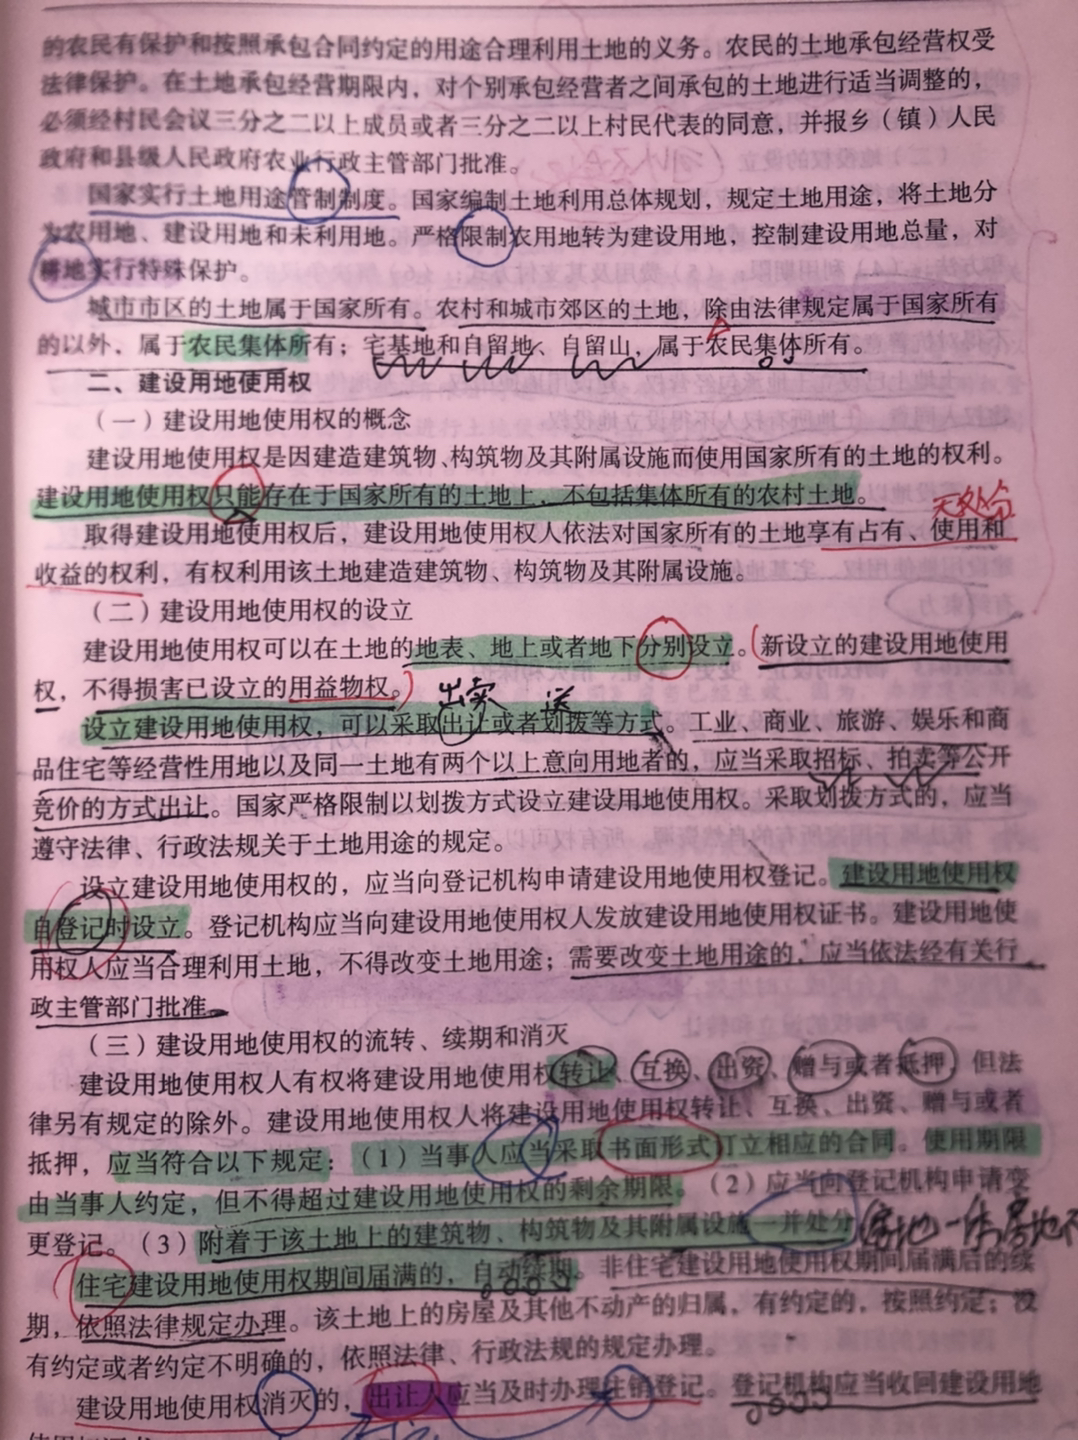 的农民有保护和按照承包合同约定的用途合理利用土地的义务。农民的土地承包经营权受
法律保护。在土地承包经营期限内，对个别承包经营者之间承包的土地进行适当调整的，
必须经村民会议三分之二以上成员或者三分之二以上村民代表的同意，并报乡（镇）人民
政府和县级人民政府农业行政主管部门批准。
国家实行土地用途管制制度。国家编制土地利用总体规划，规定土地用途，将土地分
为农用地、建设用地和未利用地。严格限制农用地转为建设用地，控制建设用地总量，对
耕地实行特殊保护。
城市市区的土地属于国家所有。农村和城市郊区的土地，除由法律规定属于国家所有
的以外，属于农民集体所有；宅基地和自留地、自留山，属于农民集体所有。
二、建设用地使用权
（一）建设用地使用权的概念
建设用地使用权是因建造建筑物、构筑物及其附属设施而使用国家所有的土地的权利。
建设用地使用权只能存在于国家所有的土地上，不包括集体所有的农村土地。
无处分
取得建设用地使用权后，建设用地使用权人依法对国家所有的土地享有占有、使用和
收益的权利，有权利用该土地建造建筑物、构筑物及其附属设施。
（二）建设用地使用权的设立
建设用地使用权可以在土地的地表、地上或者地下分别设立。（新设立的建设用地使用
权，不得损害已设立的用益物权。）
出卖 送
设立建设用地使用权，可以采取出让或者划拨等方式。工业、商业、旅游、娱乐和商
品住宅等经营性用地以及同一土地有两个以上意向用地者的，应当采取招标、拍卖等公开
竞价的方式出让。国家严格限制以划拨方式设立建设用地使用权。采取划拨方式的，应当
遵守法律、行政法规关于土地用途的规定。
设立建设用地使用权的，应当向登记机构申请建设用地使用权登记。建设用地使用权
自登记时设立。登记机构应当向建设用地使用权人发放建设用地使用权证书。建设用地使
用权人应当合理利用土地，不得改变土地用途；需要改变土地用途的，应当依法经有关行
政主管部门批准。
（三）建设用地使用权的流转、续期和消灭
建设用地使用权人有权将建设用地使用权转让、互换、出资、赠与或者抵押，但法
律另有规定的除外。建设用地使用权人将建设用地使用权转让、互换、出资、赠与或者
抵押，应当符合以下规定：（1）当事人应当采取书面形式订立相应的合同。使用期限
由当事人约定，但不得超过建设用地使用权的剩余期限。（2）应当向登记机构申请变
更登记。（3）附着于该土地上的建筑物、构筑物及其附属设施一并处分
住宅建设用地使用权期间届满的，自动续期。非住宅建设用地使用权期间届满后的续
期，依照法律规定办理。该土地上的房屋及其他不动产的归属，有约定的，按照约定；没
有约定或者约定不明确的，依照法律、行政法规的规定办理。
建设用地使用权消灭的，出让人应当及时办理注销登记。登记机构应当收回建设用地